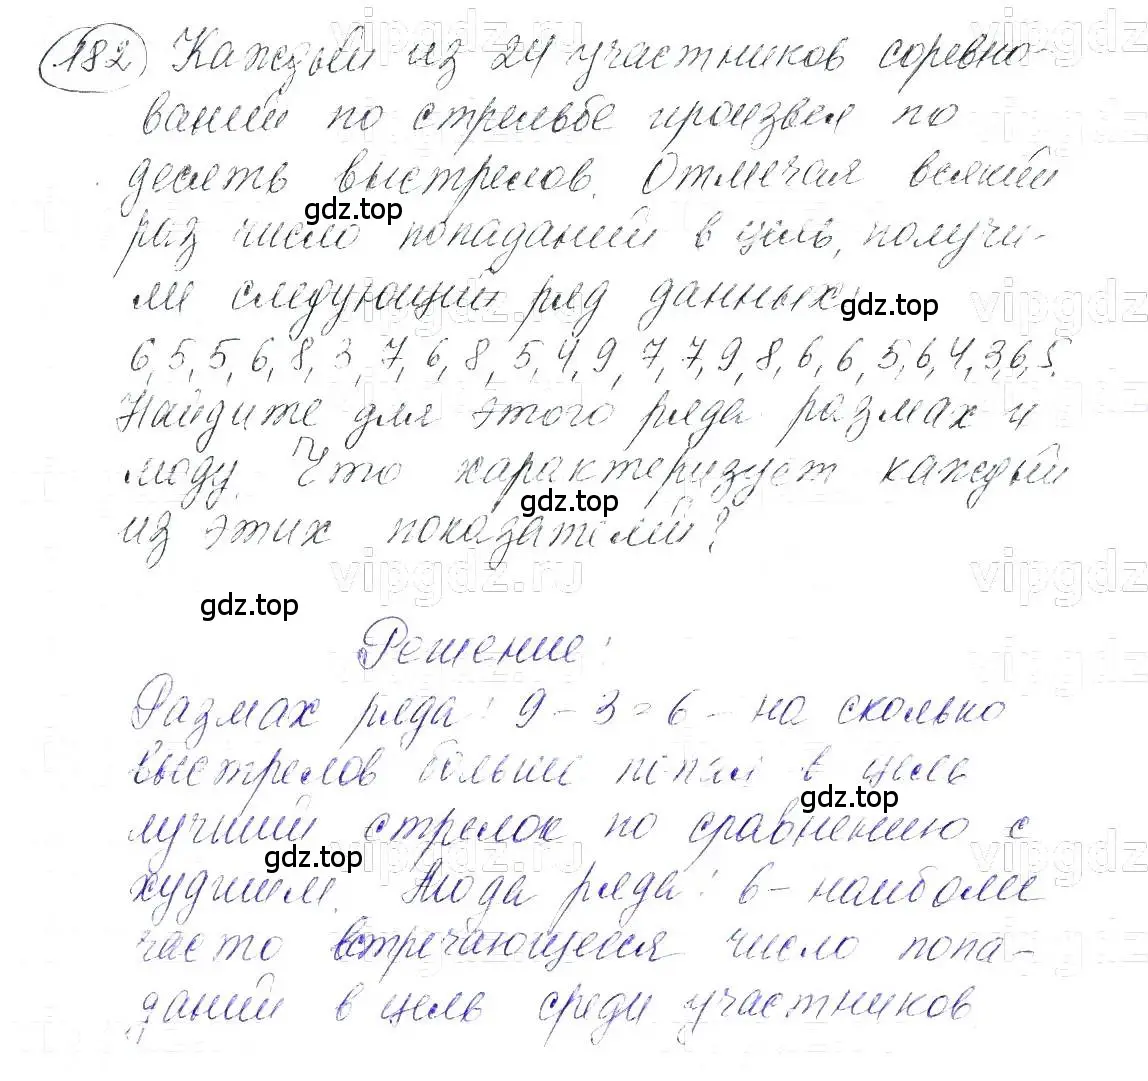 182 Каждый из 24 участников соревно-
ваний по стрельбе произвел по
десять выстрелов. Отмечая всякий
раз число попаданий в цель, получи-
ли следующий ряд данных:
6, 5, 5, 6, 8, 3, 7, 6, 8, 5, 4, 9, 7, 7, 9, 8, 6, 6, 5, 6, 4, 3, 6, 5.
Найдите для этого ряда размах и
моду. Что характеризует каждый
из этих показателей?
Решение:
Размах ряда: 9 - 3 = 6 - на сколько
выстрелов больше попал в цель
лучший стрелок по сравнению с
худшим. Мода ряда: 6 - наиболее
часто встречающееся число попа-
даний в цель среди участников
gdz.top
gdz.top
gdz.top
gdz.top
gdz.top
gdz.top
vipgdz.ru
vipgdz.ru
vipgdz.ru
vipgdz.ru
vipgdz.ru